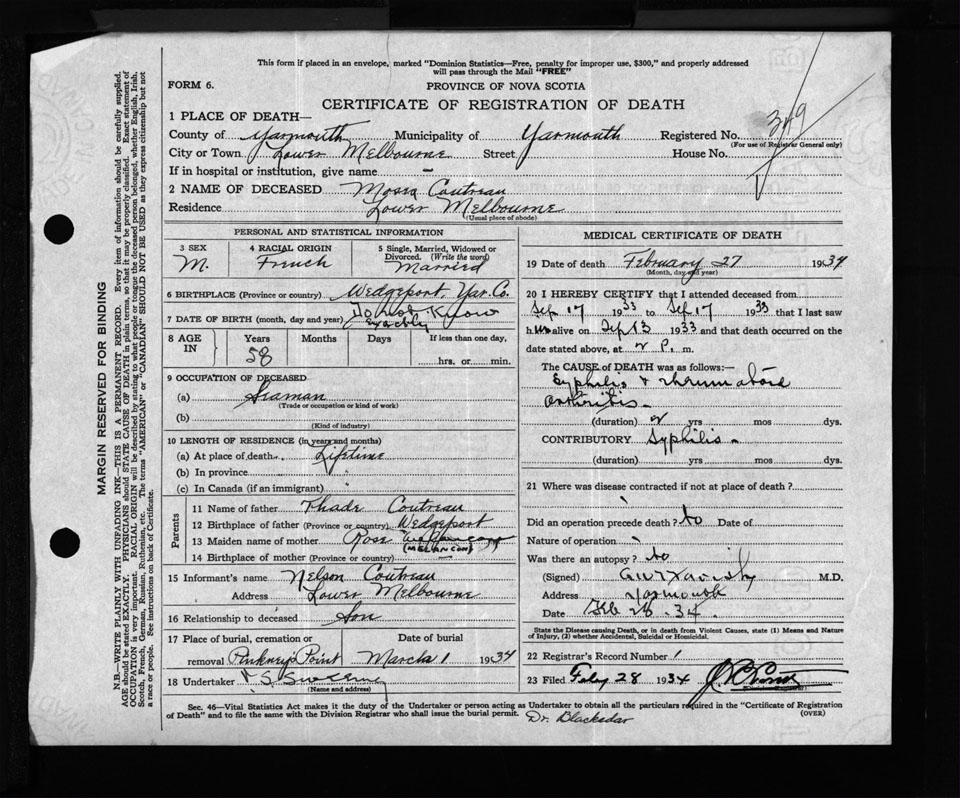 This form if placed in an envelope, marked "Dominion Statistics—Free, penalty for improper use, $300," and properly addressed
will pass through the Mail "FREE"
FORM 6.
PROVINCE OF NOVA SCOTIA
CERTIFICATE OF REGISTRATION OF DEATH
349
1 PLACE OF DEATH—
County of Yarmouth Municipality of Yarmouth Registered No.
(For use of Registrar General only)
City or Town Lower Melbourne Street House No.
If in hospital or institution, give name –
2 NAME OF DECEASED Coutreau
Residence Lower Melbourne
(Usual place of abode)
PERSONAL AND STATISTICAL INFORMATION
3 SEX
M.
4 RACIAL ORIGIN
French
5 Single, Married, Widowed or
Divorced. (Write the word)
Married
6 BIRTHPLACE (Province or country) Wedgeport, Yar. Co.
7 DATE OF BIRTH (month, day and year) Do not Know
exactly
8 AGE
IN
Years
58
Months
Days
If less than one day,
hrs. or min.
9 OCCUPATION OF DECEASED
(a) Seaman
(Trade or occupation or kind of work)
(b)
(Kind of industry)
10 LENGTH OF RESIDENCE (in years and months)
(a) At place of death Lifetime
(b) In province "
(c) In Canada (if an immigrant) "
Parents
11 Name of father Thade Coutreau
12 Birthplace of father (Province or country) Wedgeport
13 Maiden name of mother Rose
(MELANCON)
14 Birthplace of mother (Province or country) –
15 Informant's name Nelson Coutreau
Address Lower Melbourne
16 Relationship to deceased Son
17 Place of burial, cremation or
removal Pinkney's Point
Date of burial
March 1 1934
18 Undertaker V. S. Sweeney
(Name and address)
MEDICAL CERTIFICATE OF DEATH
19 Date of death February 27 1934
(Month, day and year)
20 I HEREBY CERTIFY that I attended deceased from
Sep 17 1933 to Sep 17 1933 that I last saw
h im alive on Sep 13 1933 and that death occurred on
the date stated above, at 2 P. m.
The CAUSE OF DEATH was as follows:—
Syphilis & rheumatoid
arthritis –
(duration) 2 yrs mos dys.
CONTRIBUTORY Syphilis –
(duration) yrs mos dys.
21 Where was disease contracted if not at place of death?
Did an operation precede death? No Date of
Nature of operation
Was there an autopsy? No
(Signed) M.D.
Address Yarmouth
Date Feb 28. 34.
State the Disease causing Death, or in death from Violent Causes, state (1) Means and Nature
of Injury, (2) whether Accidental, Suicidal or Homicidal.
22 Registrar's Record Number 1
23 Filed Feby 28 1934
Sec. 46—Vital Statistics Act makes it the duty of the Undertaker or person acting as Undertaker to obtain all the particulars required in the "Certificate of Registration
of Death" and to file the same with the Division Registrar who shall issue the burial permit.
(OVER)
Dr. Blackadar
MARGIN RESERVED FOR BINDING
N.B. WRITE PLAINLY WITH UNFADING INK—THIS IS A PERMANENT RECORD. Every item of information should be carefully supplied.
AGE should be stated EXACTLY. PHYSICIANS should STATE CAUSE OF DEATH in plain terms, so that it may be properly classified. Exact statement of
OCCUPATION is very important. RACIAL ORIGIN will be described by stating to what people or tongue the deceased person belonged, whether English, Irish,
Scotch, French, German, Russian, Ruthenian, etc. The terms "AMERICAN" or "CANADIAN" SHOULD NOT BE USED as they express citizenship but not
a race or people. See instructions on back of Certificate.